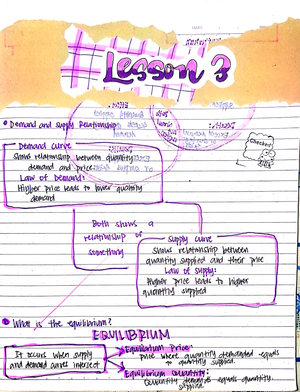 Lesson 3
Demand and Supply Relationship
Checked!
Demand curve
shows relationship between quantity
demand and price
Law of Demand:
Higher price leads to lower quantity
demand
Both shows a
relationship of
something
Supply curve
shows relationship between
quantity supplied and their price
Law of Supply:
Higher price leads to higher
quantity supplied
What is the equilibrium?
EQUILIBRIUM
It occurs when supply
and demand curves intersect
Equilibrium Price:
price where quantity demanded equals
to quantity supplied.
Equilibrium Quantity:
Quantity demanded equals quantity
supplied.